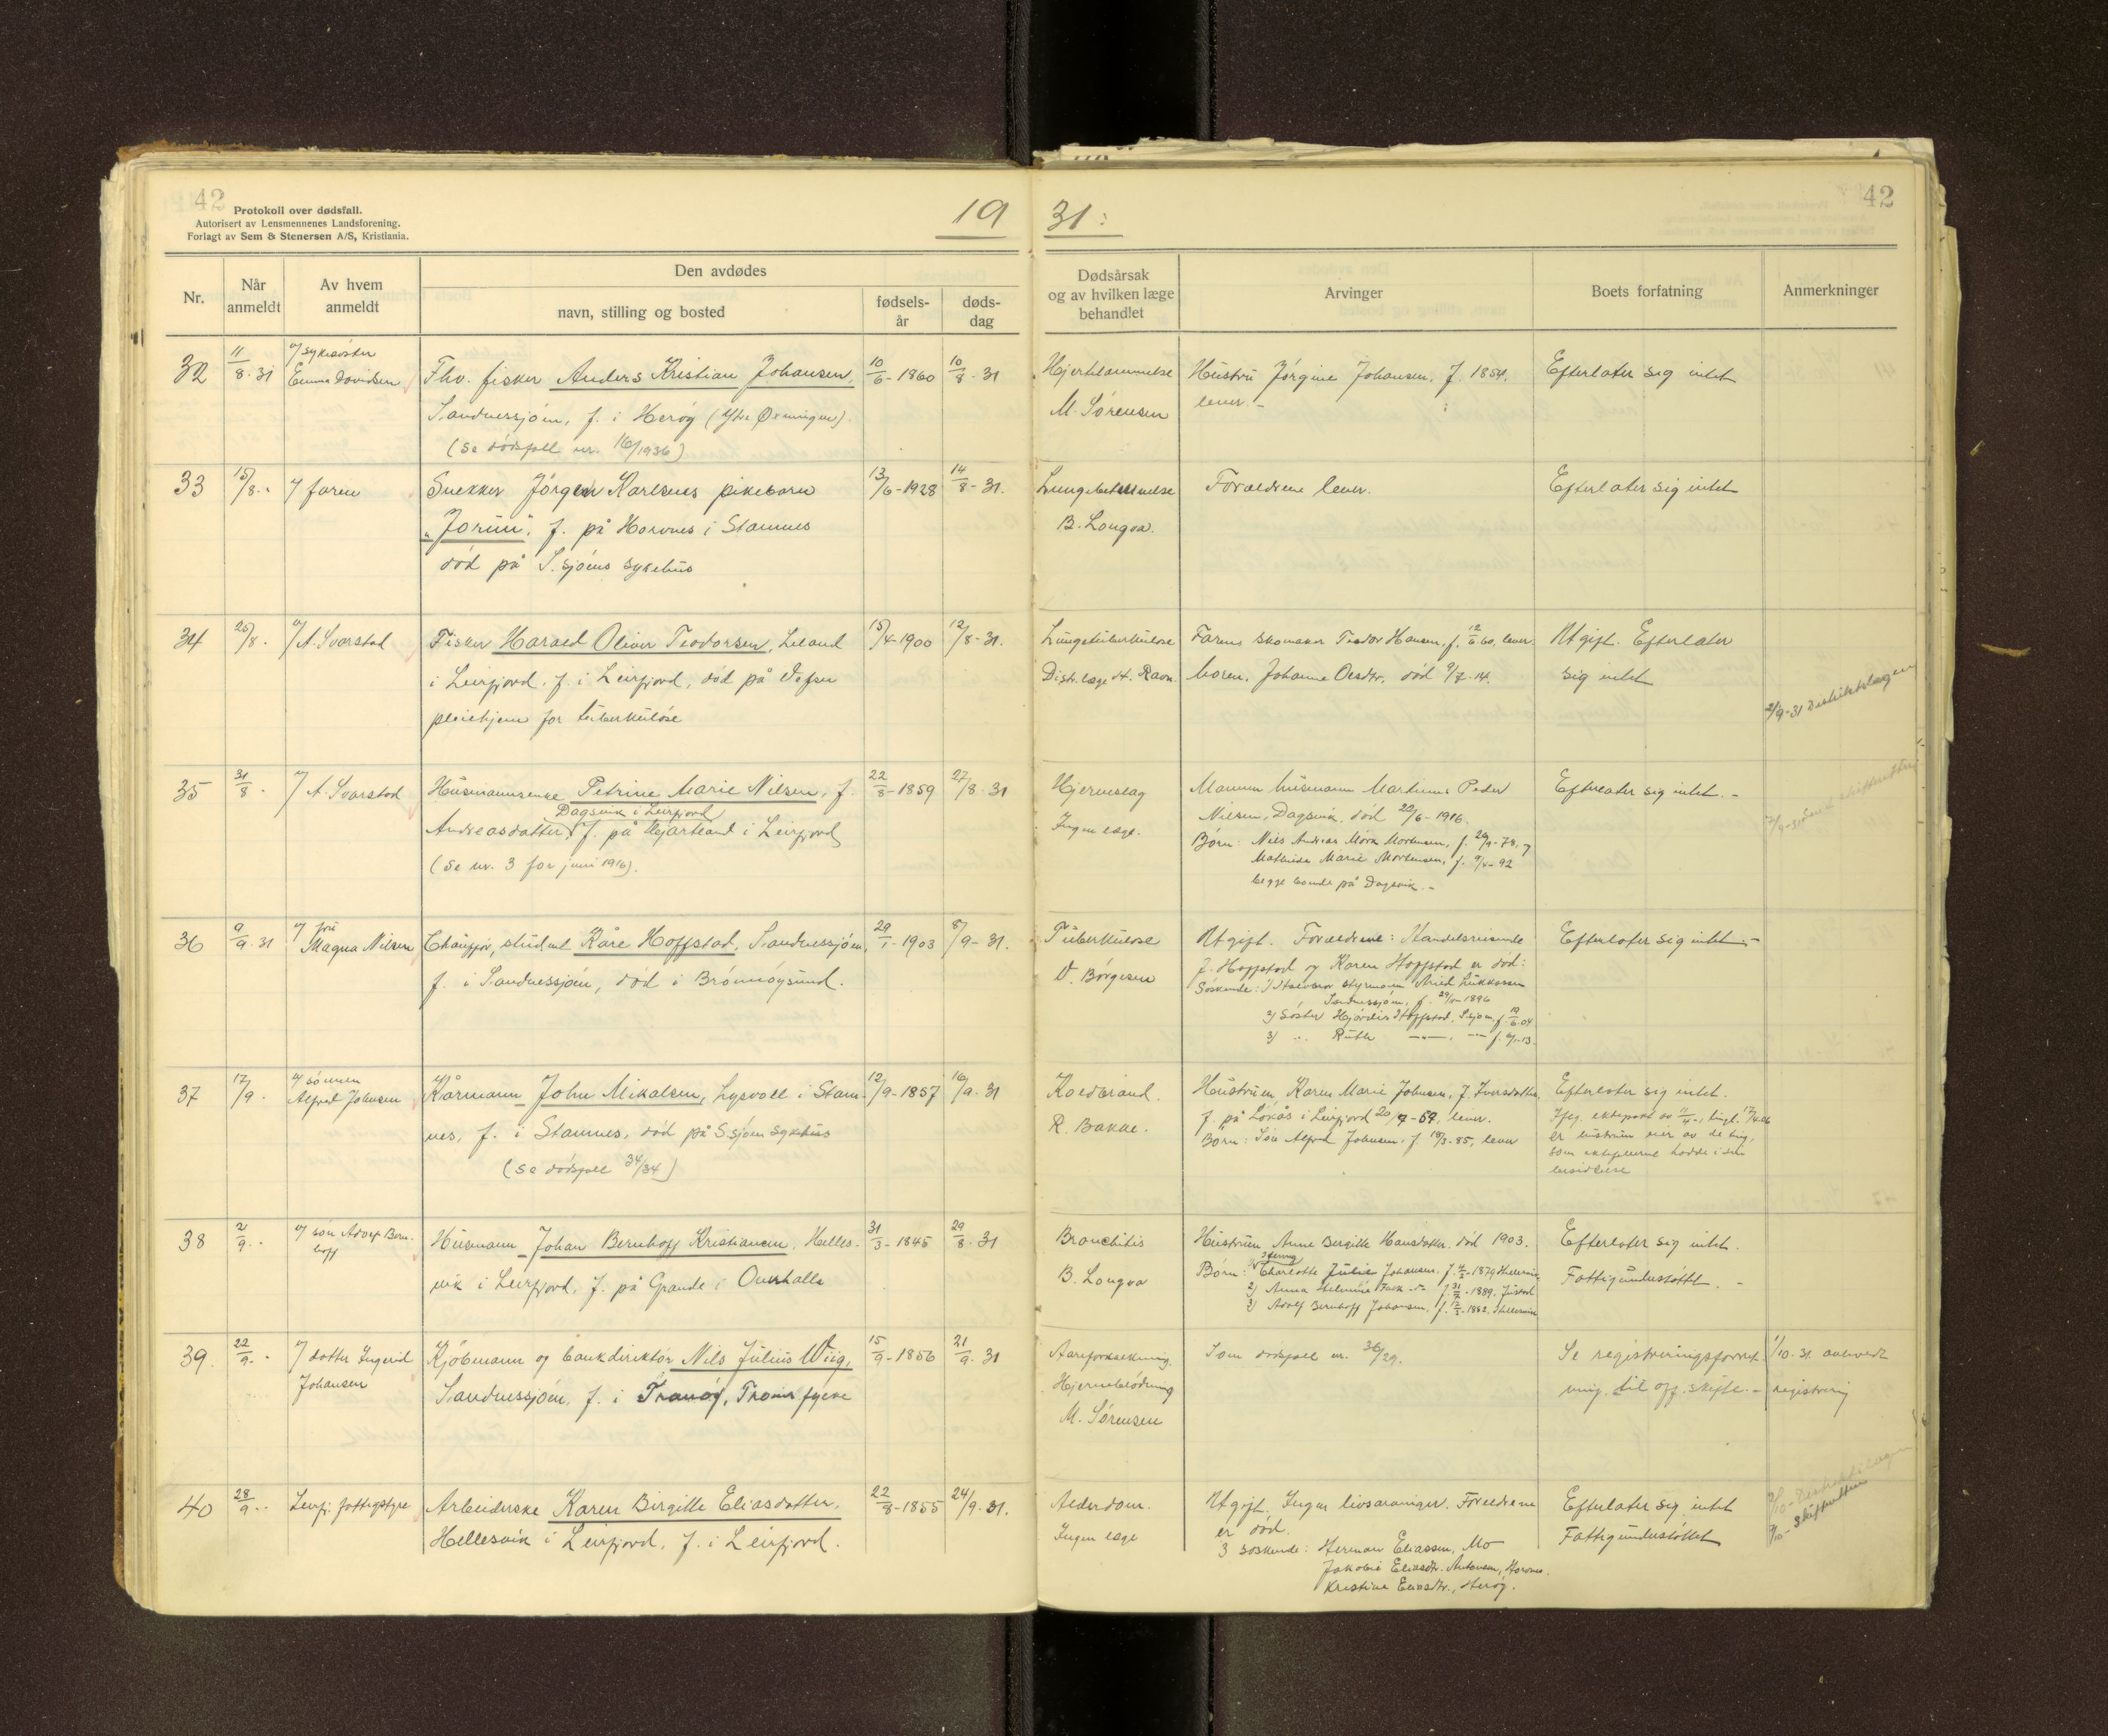 42
Protokoll over dødsfall.
Autorisert av Lensmennenes Landsforening.
Forlagt av Sem & Stenersen A/S, Kristiania.
19
31:
42
Nr.
Når anmeldt
Av hvem anmeldt
Den avdødes
navn, stilling og bosted
fødsels-år
døds-dag
Dødsårsak og av hvilken læge behandlet
Arvinger
Boets forfatning
Anmerkninger
32
11/8.31
Emma Davidsen
Fhv. fisker Anders Kristian Johansen,
Sandnessjøen, f. i Herøy
(Se dødsfall nr. 16/1936)
10/6-1860
10/8.31
Hjertelammelse
M. Sørensen
Hustru Jørgine Johansen, f. 1854,
lever.-
Efterlater sig intet
33
15/8.
faren
Snekker Jørgen Karlsens pikebarn
"Jorun", f. på Horvnes i Stamnes
død på S.sjøens sykehus
13/6-1928
14/8-31.
B. Longva.
Forældrene lever.
Efterlater sig intet
34
25/8.
A. Svarstad
Fisker Harald Oliver Teodorsen, Leland
i Leirfjord, f. i Leirfjord, død på Vefsn
pleiehjem for tuberkuløse
15/4-1900
12/8-31.
Lungetuberkulose
Distr.læge H. Ravn
Faren skomaker Teodor Hansen, f. 12/6 60, lever.
Moren, Johanne Olsdtr. død 9/7-14.
Ugift. Efterlater
sig intet
2/9-31 Distriktslægen
35
31/8.
A. Svarstad
Husmannsenke Petrine Marie Nilsen, f.
Dagsvik i Leirfjord
Andreasdatter, f. på Hjartland i Leirfjord
(Se nr. 3 for juni 1916).
22/8-1859
27/8.31
Hjerneslag
Ingen læge.
Mannen husmann Martinus Peder
Nilsen, Dagsvik, død 22/6-1916.
Børn: Nils Andreas Mørk Mortensen,
Mathilde Marie Mortensen,
begge boende på Dagsvik.-
Efterlater sig intet.-
36
9/9.31
fru
Magna Nilsen
Chauffør, student Kåre Hoffstad, Sandnessjøen,
f. i Sandnessjøen, død i Brønnøysund.
29/1-1903
8/9-31.
Tuberkulose
V. Børgesen
Ugift. Forældrene: Handelsreisende
J. Hoffstad og Karen Hoffstad er død:
Søskende: 1) Halvbror styrmann
Sandnessjøen,
2) Søster Hjørdis Hoffstad, S.sjøen,
3) " Ruth
Efterlater sig intet.-
37
17/9.
sønnen
Alfred Johnsen
Kårmann John Mikalsen, Lysvoll i Stam-
nes, f. i Stamnes, død på S.sjøen sykehus
(se dødsfall 34/34)
12/9-1857
16/9.31
Koldbrand.
R. Bakke.
Hustruen, Karen Marie Johnsen, f. Iversdatter,
f. på Løvås i Leirfjord lever.
Børn: Søn Alfred Johnsen, f. 18/3-85, lever
Efterlater sig intet.
er hustruen eier av de ting,
som ektefellerne hadde i sin
besiddelse
38
2/9.
søn Adolf Bern-
hoff
Husmann Johan Bernhoff Kristiansen, Helles-
vik i Leirfjord, f. på Grande i Overhalla
31/3-1845
29/8.31
Bronchitis
B. Longva
Hustruen Anne Birgitte Hansdatter, død 1903.
Børn: Charlotte Julie Johansen,
2) Anna
3) Adolf Bernhoff Johansen,
Efterlater sig intet.
Fattigunderstøttet.-
39.
22/9.
datter Ingerid
Johansen
Kjøbmann og bankdirektør Nils Julius Wiig,
Sandnessjøen, f. i Tranøy, Troms fylke
15/9-1856
21/9.31
Aareforkalkning.
Hjerneblødning
M. Sørensen
Som dødsfall nr. 36/29.
Se registreringsforret-
ning til off. skifte.-
1/10.31.
registrering
40
28/9.
Leirfj. fattigstyre
Arbeiderske Karen Birgitte Eliasdatter,
Hellesvik i Leirfjord, f. i Leirfjord.
22/8-1855
24/9.31.
Alderdom.
Ingen læge
Ugift. Ingen livsarvinger. Forældrene
er død.
3 søskende: Herman Eliassen, Mo
Jakobie Eliasdtr. Antonsen,
Kristine Eliasdtr., Herøy.
Efterlater sig intet
Fattigunderstøttet
Distriktslægen
Skifteretten